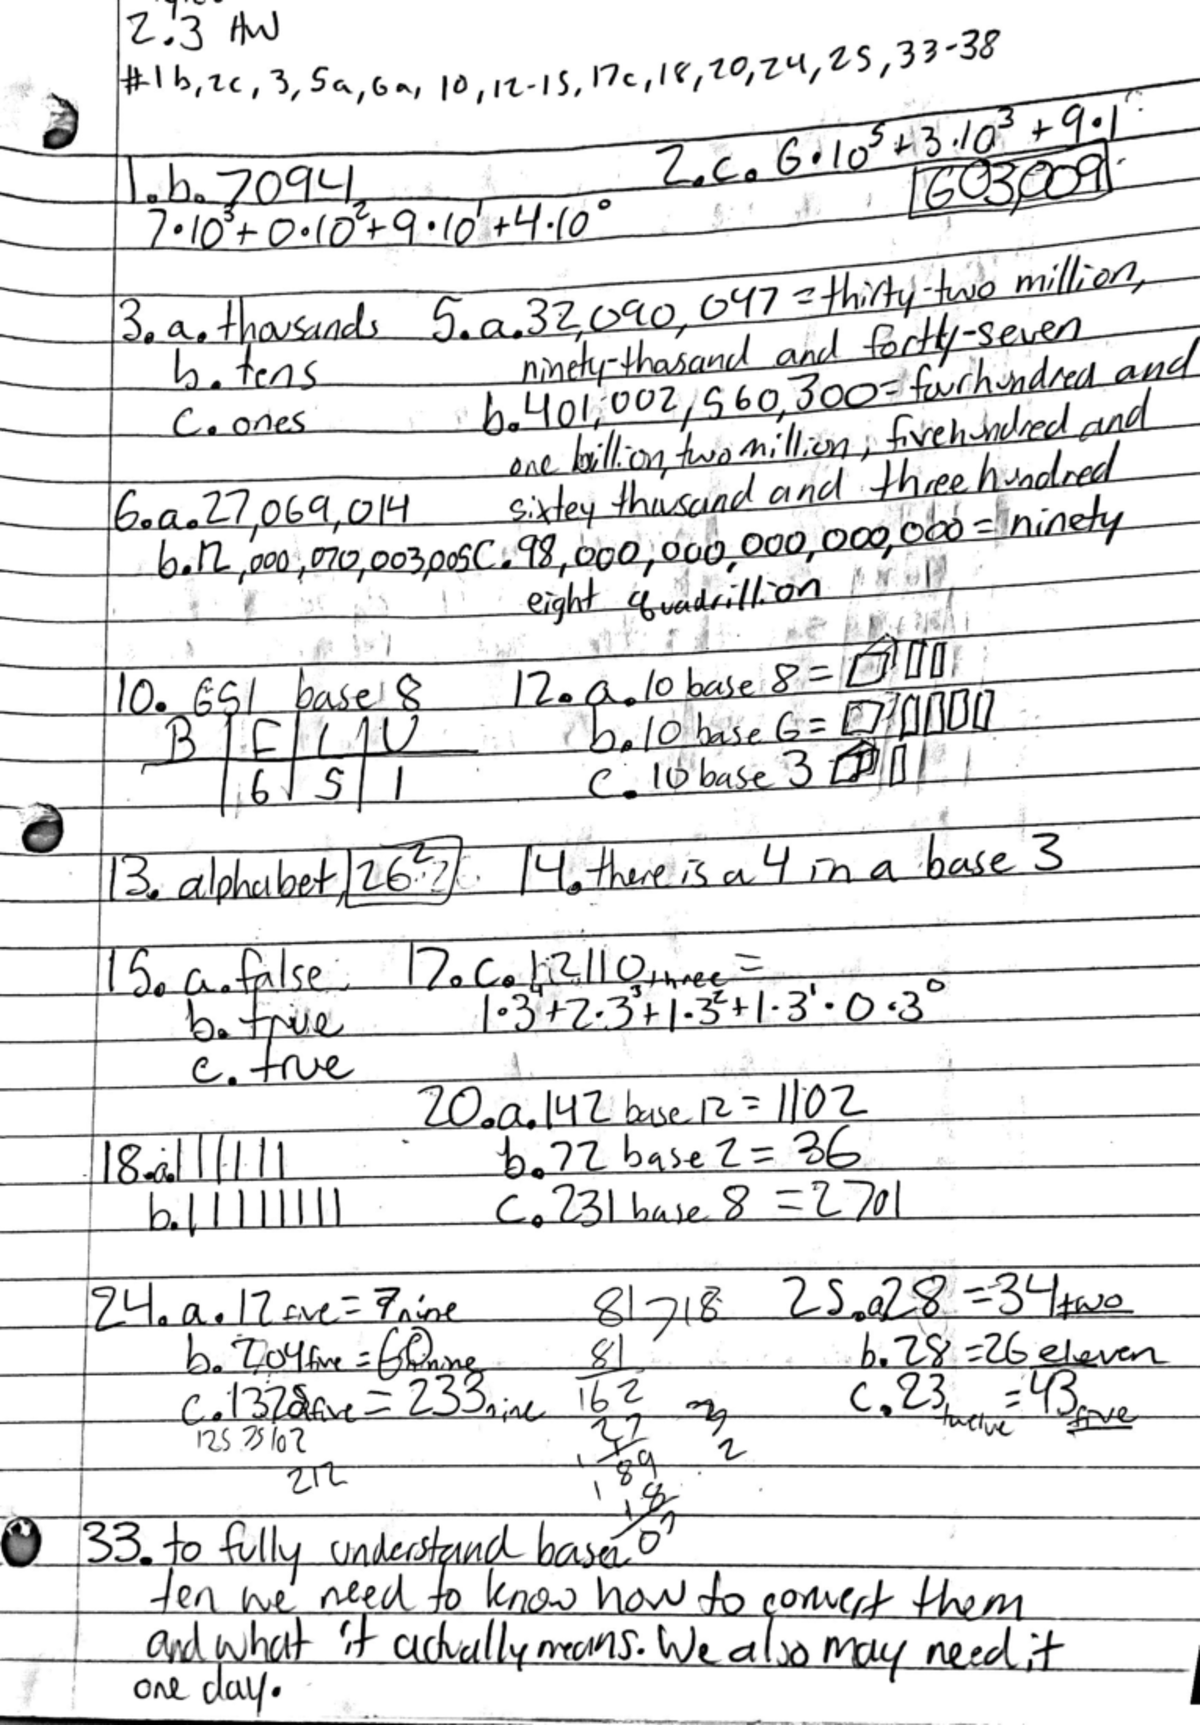 2.3 HW
#1b, 2c, 3, 5a, 6a, 10, 12-15, 17c, 18, 20, 24, 25, 33-38
1.b. 7094
7·10³+0·10²+9·10¹+4·10⁰
2.c. 6·10⁵+3·10³+9·1
603,009
3. a. thousands
b. tens
c. ones
5.a. 32,090,047 = thirty-two million,
ninety-thasand and fortty-seven
b. 401,002,560,300 = fourhundred and
one billion, two million, fivehundred and
sixtey thousand and three hundred
6.a. 27,069,014
b. 12,000,070,003,005
C. 98,000,000,000,000,000 = ninety
eight quadrillion
10. 651 base 8
B F L U
6 5 1
12. a. 10 base 8 =
b. 10 base 6 =
c. 10 base 3
13. alphabet, 26²
14. there is a 4 in a base 3
15. a. false
b. true
c. true
17.c. 12110three =
1·3⁴+2·3³+1·3²+1·3¹·0·3⁰
18.a. | | | | | |
b. | | | | | | | |
20.a. 142 base 12 = 1102
b. 72 base 2 = 36
c. 231 base 8 = 2701
24. a. 12five = 7nine
b. 204five = 60nine
c. 132five = 233nine
125 25 10 2
212
81 718
81
162
27
189
18
2
25.a 28 = 34two
b. 28 = 26 eleven
c. 23twelve = 43five
33. to fully understand base
ten we need to know how to convert them
and what it actually means. We also may need it
one day.